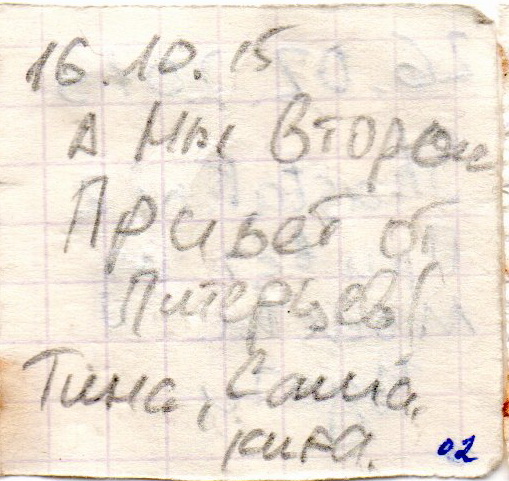 16.10.15
А мы вторые
Привет от
Питерцев!
Тина, Саша,
Кира.
02